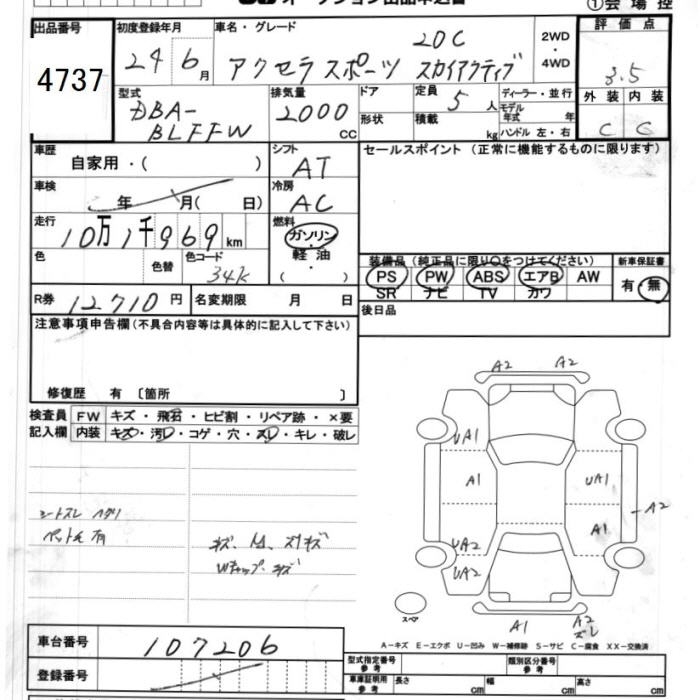 オークション出品申込書
①会場控
出品番号
4737
初度登録年月
24 6月
車名・グレード
20C
アクセラスポーツ スカイアクティブ
2WD
・
4WD
評価点
3.5
外装 内装
C C
型式
DBA-
BLFFW
排気量
2000
CC
ドア
形状
定員
5人
積載
kg
ディーラー・並行
モデル
年式 年
ハンドル 左・右
車歴
自家用・( )
シフト
AT
セールスポイント(正常に機能するものに限ります)
車検
年 月( 日)
冷房
AC
走行
10万1千969km
燃料
ガソリン
・
軽油
( )
色
色替
色コード
34K
装備品(純正品に限り○をつけてください)
新車保証書
PS PW ABS エアB AW
SR ナビ TV カワ
有・無
R券 12710円
名変期限 月 日
後日品
注意事項申告欄(不具合内容等は具体的に記入して下さい)
修復歴 有〔箇所 〕
検査員
記入欄
FW キズ・飛石・ヒビ割・リペア跡・×要
内装 キズ・汚レ・コゲ・穴・スレ・キレ・破レ
シートスレ ヘタリ
ペット毛 有
A2 A2
UA1
A1 UA1
A2
A1
UA2
UA2
スペア
A1 A2
ズレ
A-キズ E-エクボ U-凹み W-補修跡 S-サビ C-腐食 XX-交換済
車台番号
107206
登録番号
型式指定番号
参考
類別区分番号
参考
車庫証明用
参考
長さ cm
幅 cm
高さ cm